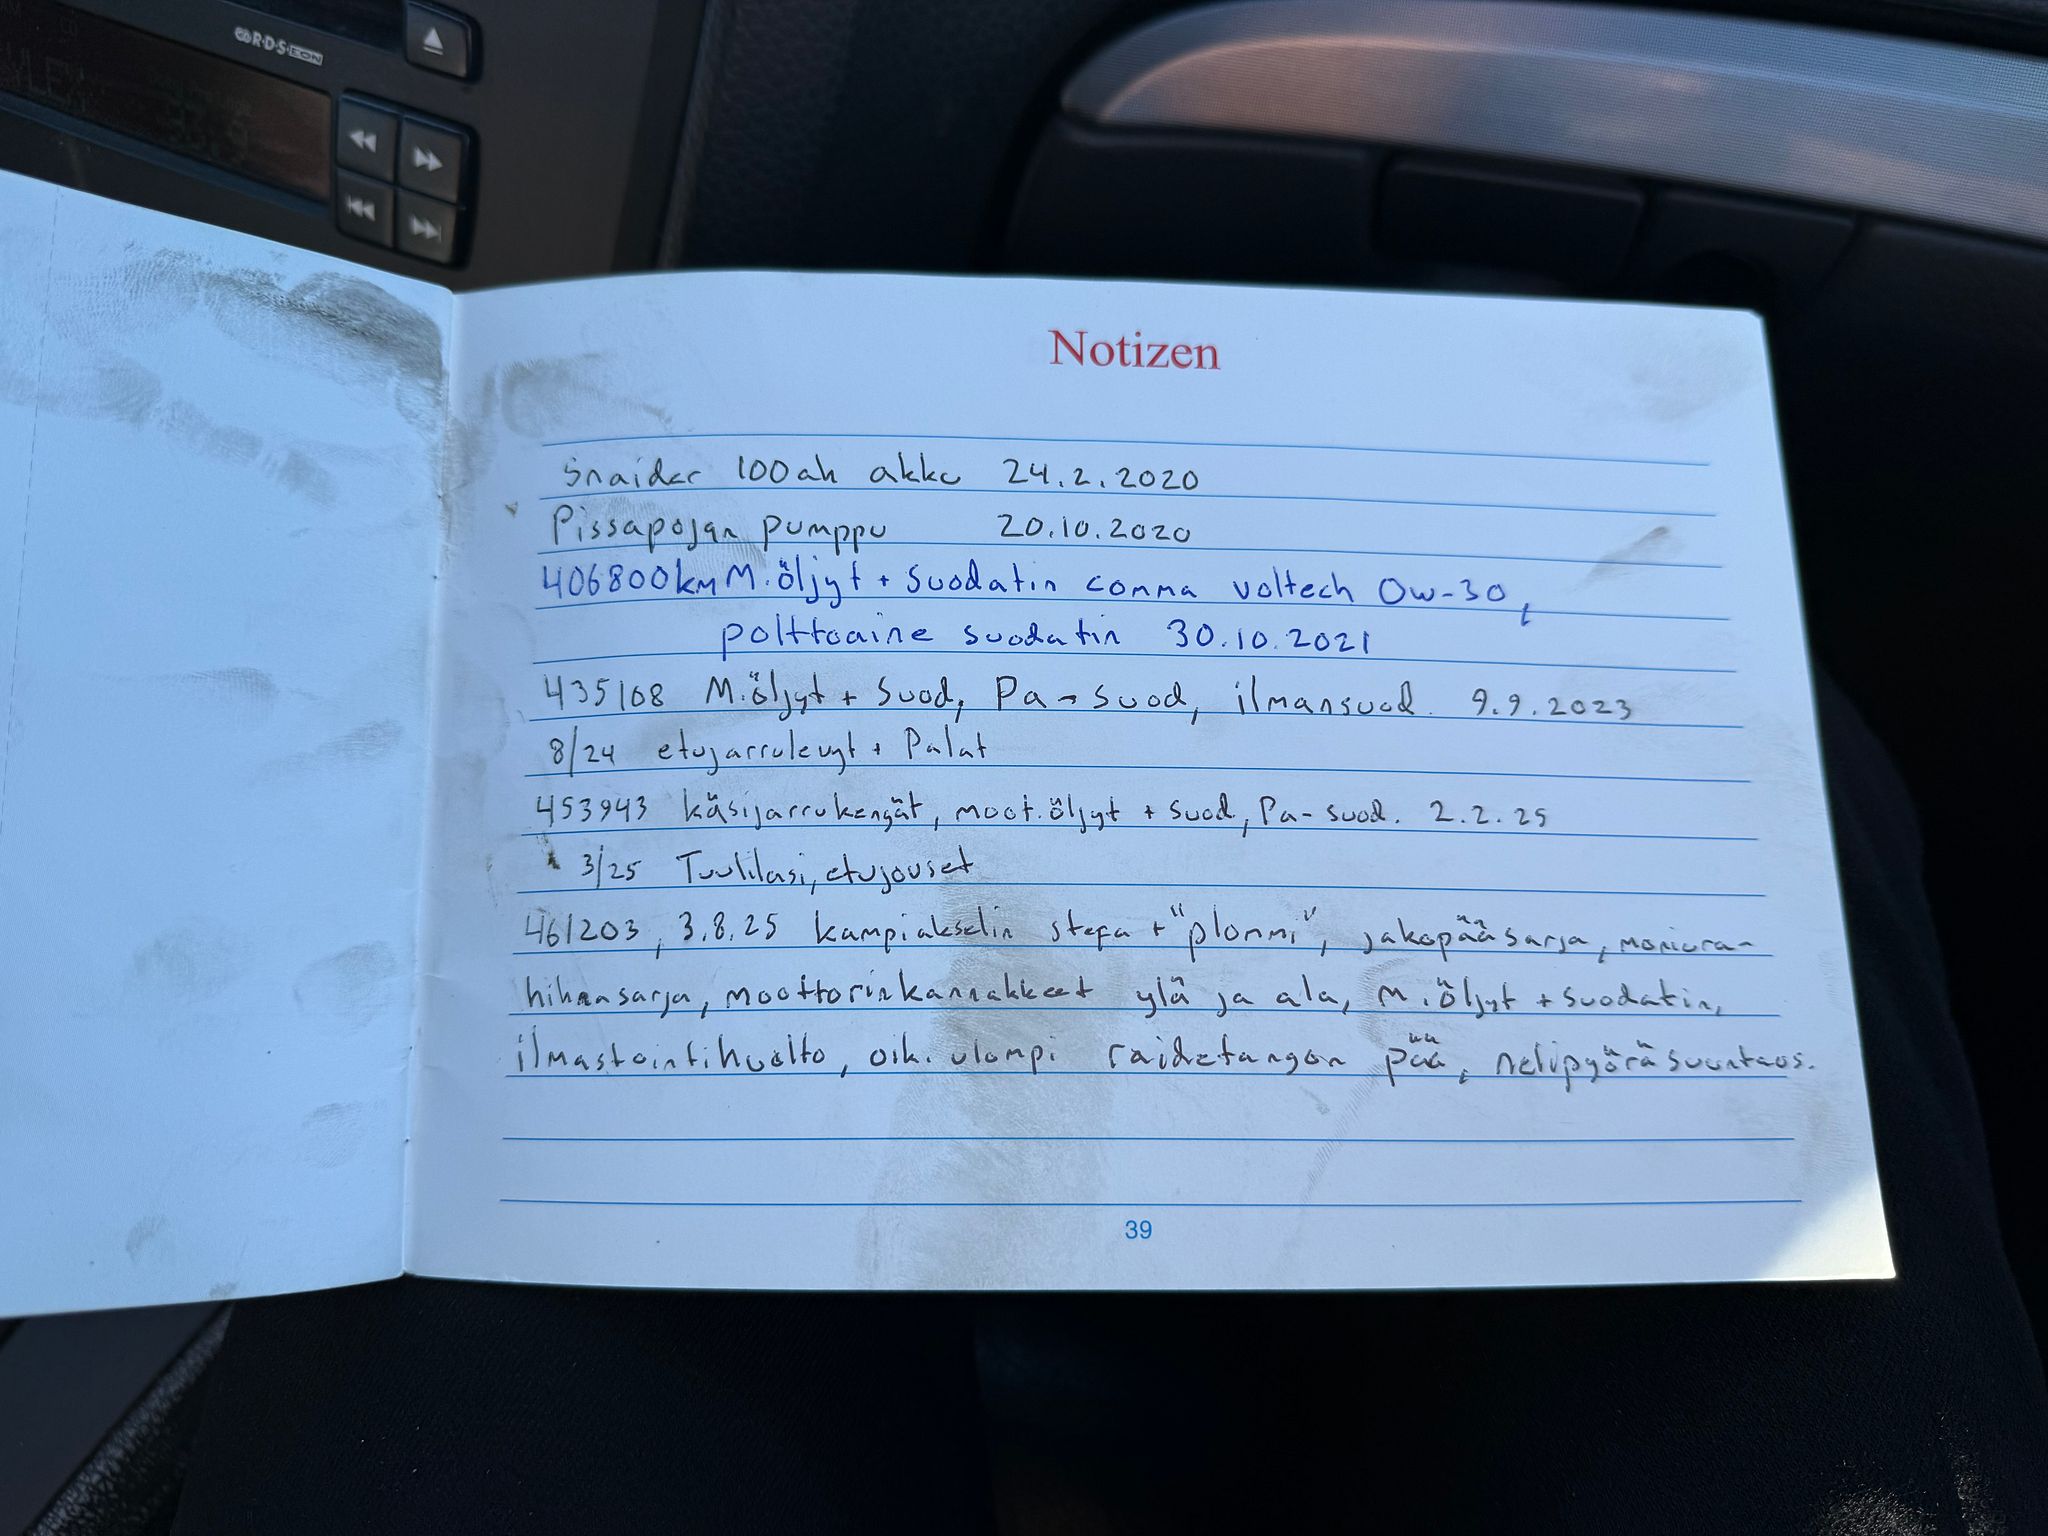 RDS EON
Notizen
Snaider 100ah akku 24.2.2020
Pissapojan pumppu 20.10.2020
406800km M.öljyt + suodatin comma voltech 0w-30,
polttoaine suodatin 30.10.2021
435108 M.öljyt + suod, Pa-suod, ilmansuod. 9.9.2023
8/24 etujarrulevyt + Palat
453943 käsijarrukengät, moot.öljyt + suod, Pa-suod. 2.2.25
3/25 Tuulilasi, etujouset
461203, 3.8.25 kampiakselin stefa + "plommi", jakopääsarja, moniura-
hihnasarja, moottorinkannakkeet ylä ja ala, M.öljyt + suodatin,
ilmastointihuolto, oik. ulompi raidetangon pää, nelipyöräsuuntaus.
39